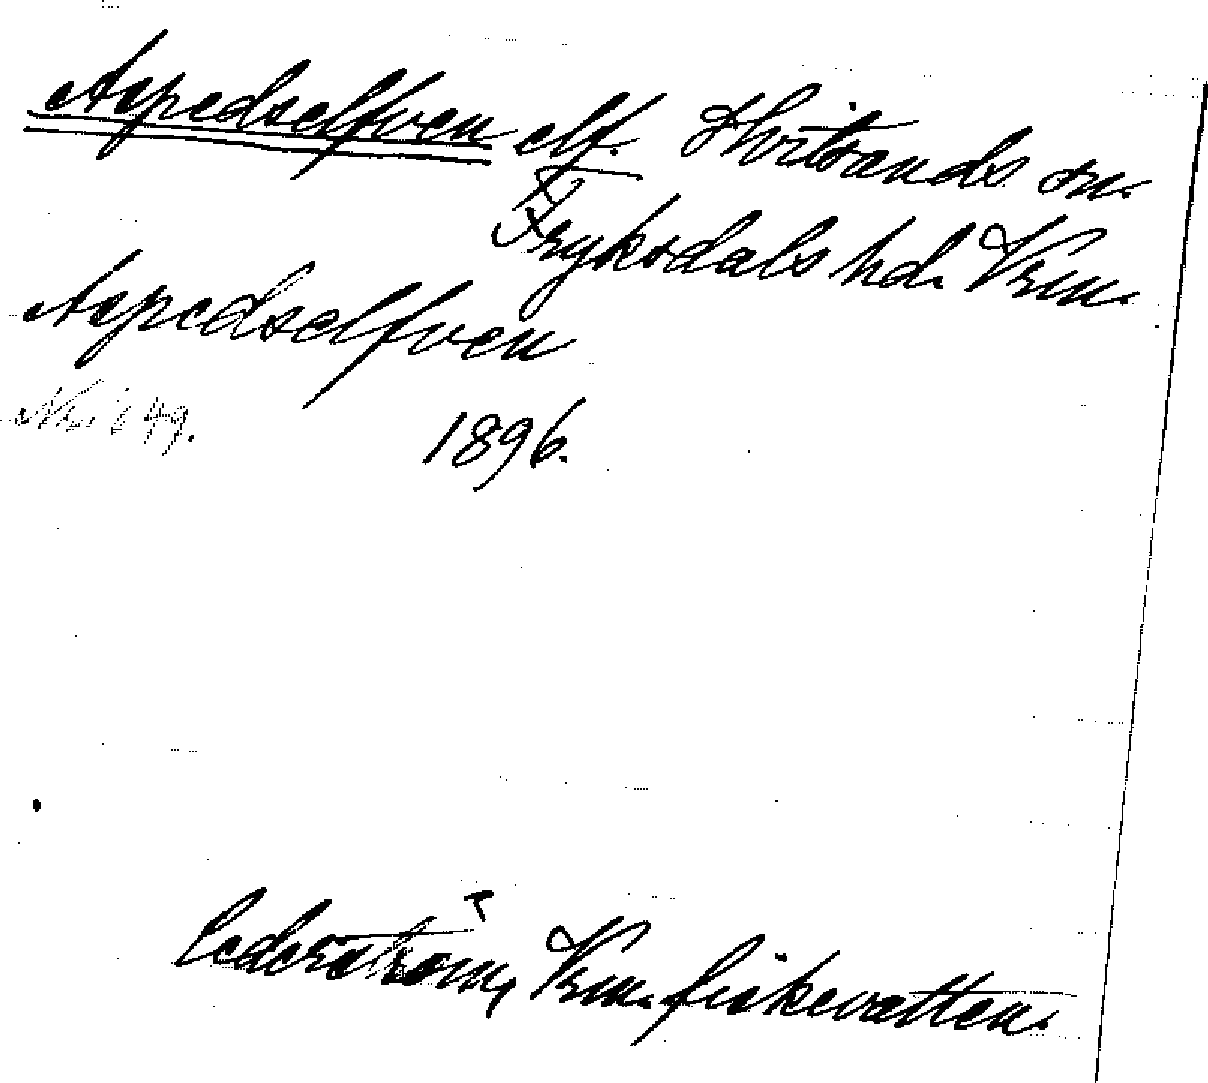 Aspedselfven elf. Hvitsands sn.
Fryksdals hd. Vrm.
Aspedselfven
49.
1896.
Cederström, Vrm. fiskevatten.